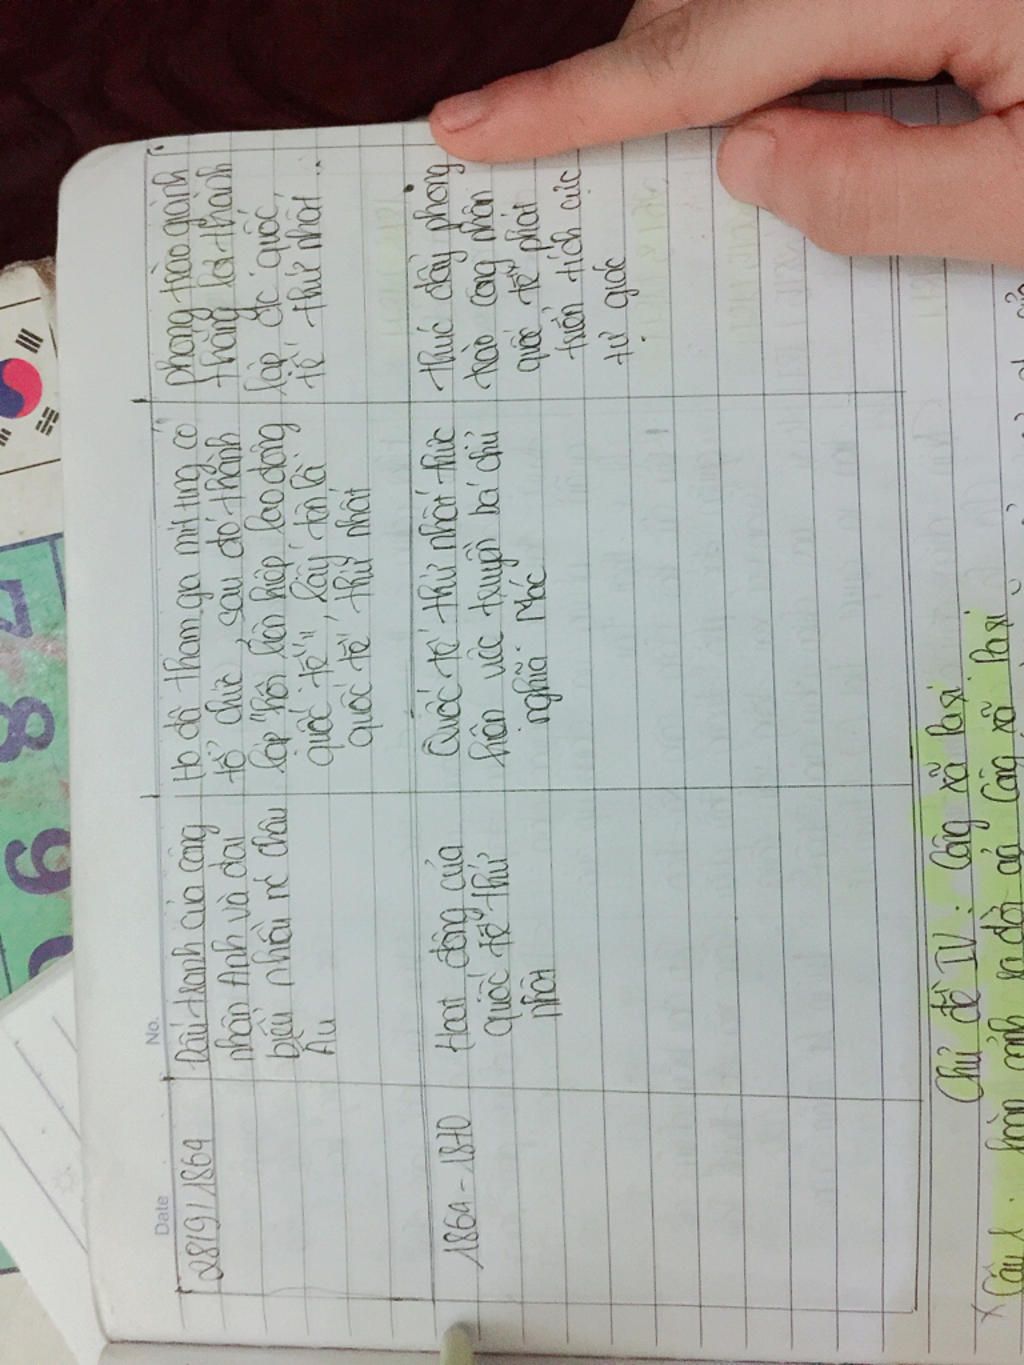 Date
No.
28/9/1864
Đấu tranh của công
nhân Anh và đại
biểu nhiều nc châu
Âu
Họ đã tham ga mít ting có
tổ chức, sau đó thành
lập "hội liên hiệp lao động
quốc tế", lấy tên là
quốc tế thứ nhất
phong trào giành
thắng lợi thành
lập đc quốc
tế thứ nhất
1864-1870
Hoạt động của
quốc tế thứ
nhất
Quốc tế thứ nhất thúc
hiện việc truyền bá chủ
nghĩa Mác
thúc đẩy phong
trào công nhân
quốc tế phát
triển tích cực
tự giác
Chủ đề IV: Công xã Pari
Câu 1: hoàn cảnh ra đời củ Công xã Pari
7
8
9